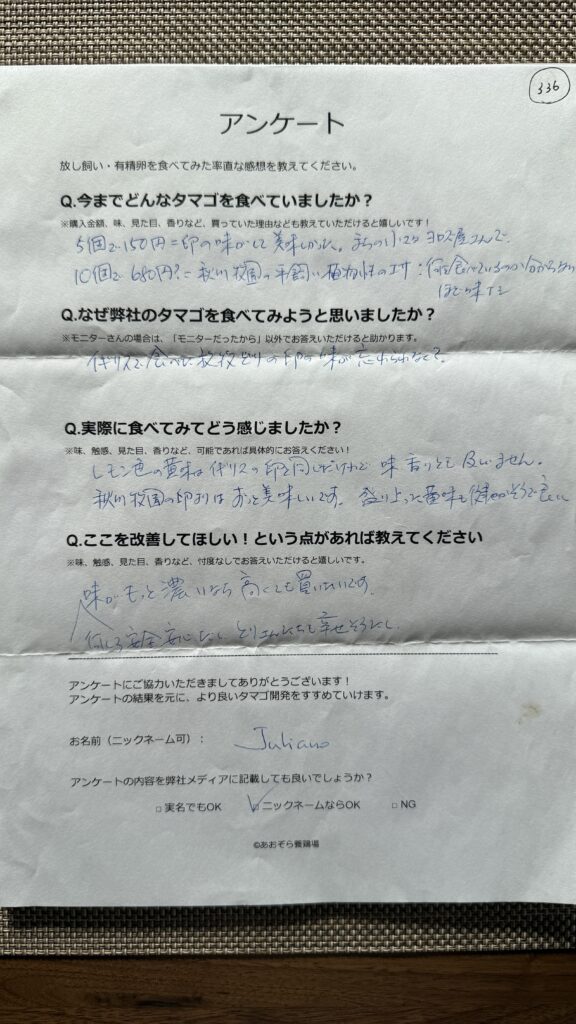 336
アンケート
放し飼い・有精卵を食べてみた率直な感想を教えてください。
Q.今までどんなタマゴを食べていましたか？
※購入金額、味、見た目、香りなど、買っていた理由なども教えていただけると嬉しいです！
5個で150円＝卵の味がして美味しかった。まちの小さな
10個で680円?＝秋川牧園の平飼い植物性のエサ：何を食べているのか分からない
ほど味
Q.なぜ弊社のタマゴを食べてみようと思いましたか？
※モニターさんの場合は、「モニターだったから」以外でお答えいただけると助かります。
イギリスで食べた放牧どりの卵の味が忘れられなくて。
Q.実際に食べてみてどう感じましたか？
※味、触感、見た目、香りなど、可能であれば具体的にお答えください！
レモン色の黄味はイギリスの卵と同じだけれど 味 香りとも及びません。
秋川牧園の卵よりはずっと美味しいです。盛り上った黄味も健やかそうで良い
Q.ここを改善してほしい！という点があれば教えてください
※味、触感、見た目、香りなど、忖度なしでお答えいただけると嬉しいです。
味がもっと濃いなら高くても買いたいです。
何しろ安全安心だし とりさんたちも幸せそうだし。
アンケートにご協力いただきましてありがとうございます！
アンケートの結果を元に、より良いタマゴ開発をすすめていけます。
お名前（ニックネーム可）： Juliano
アンケートの内容を弊社メディアに記載しても良いでしょうか？
□ 実名でもOK ☑ ニックネームならOK □ NG
©あおぞら養鶏場